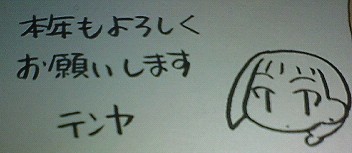 本年もよろしく
お願いします
テンヤ